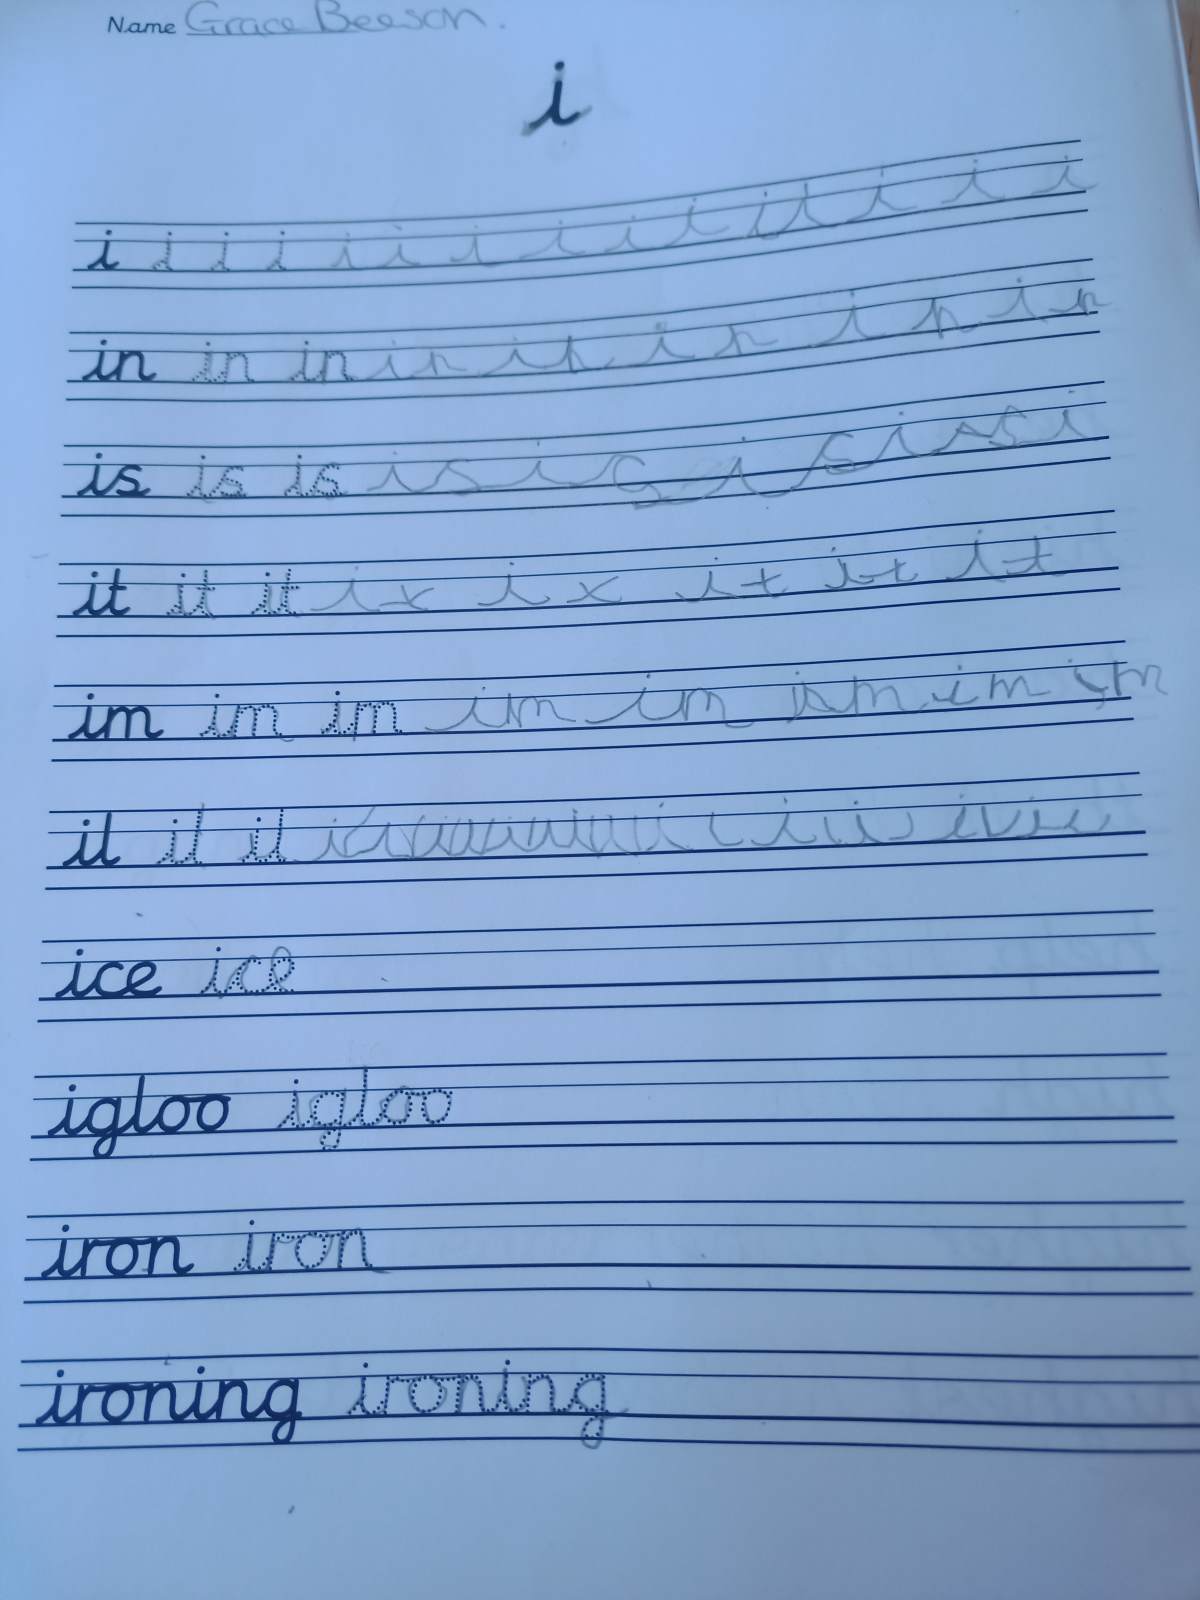 Name Grace Beeson.
i
i i i i i i i i i i it i i i
in in in in in in in in
is is is is is is is si
it it it ix ix it it it
im im im im im im im im
il il il
ice ice
igloo igloo
iron iron
ironing ironing